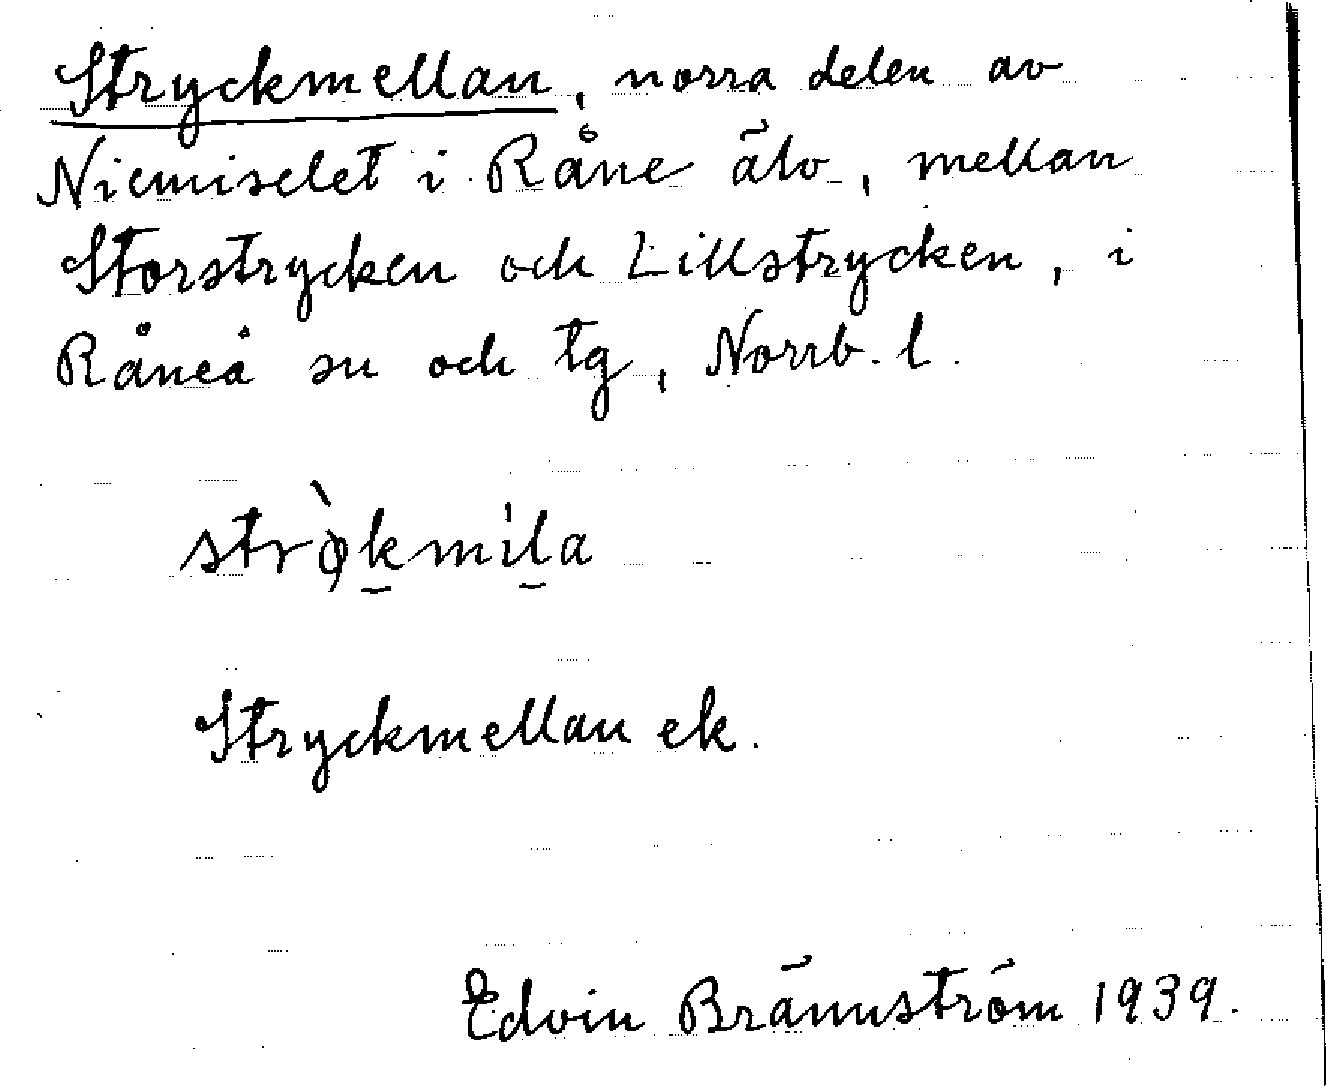 Stryckmellan, norra delen av
Niemiselet i Råne älv, mellan
Storstrycken och Lillstrycken, i
Råneå sn och tg, Norrb. l.
strò̢k̠mil̠a
Stryckmellan ek.
Edvin Brännström 1939.